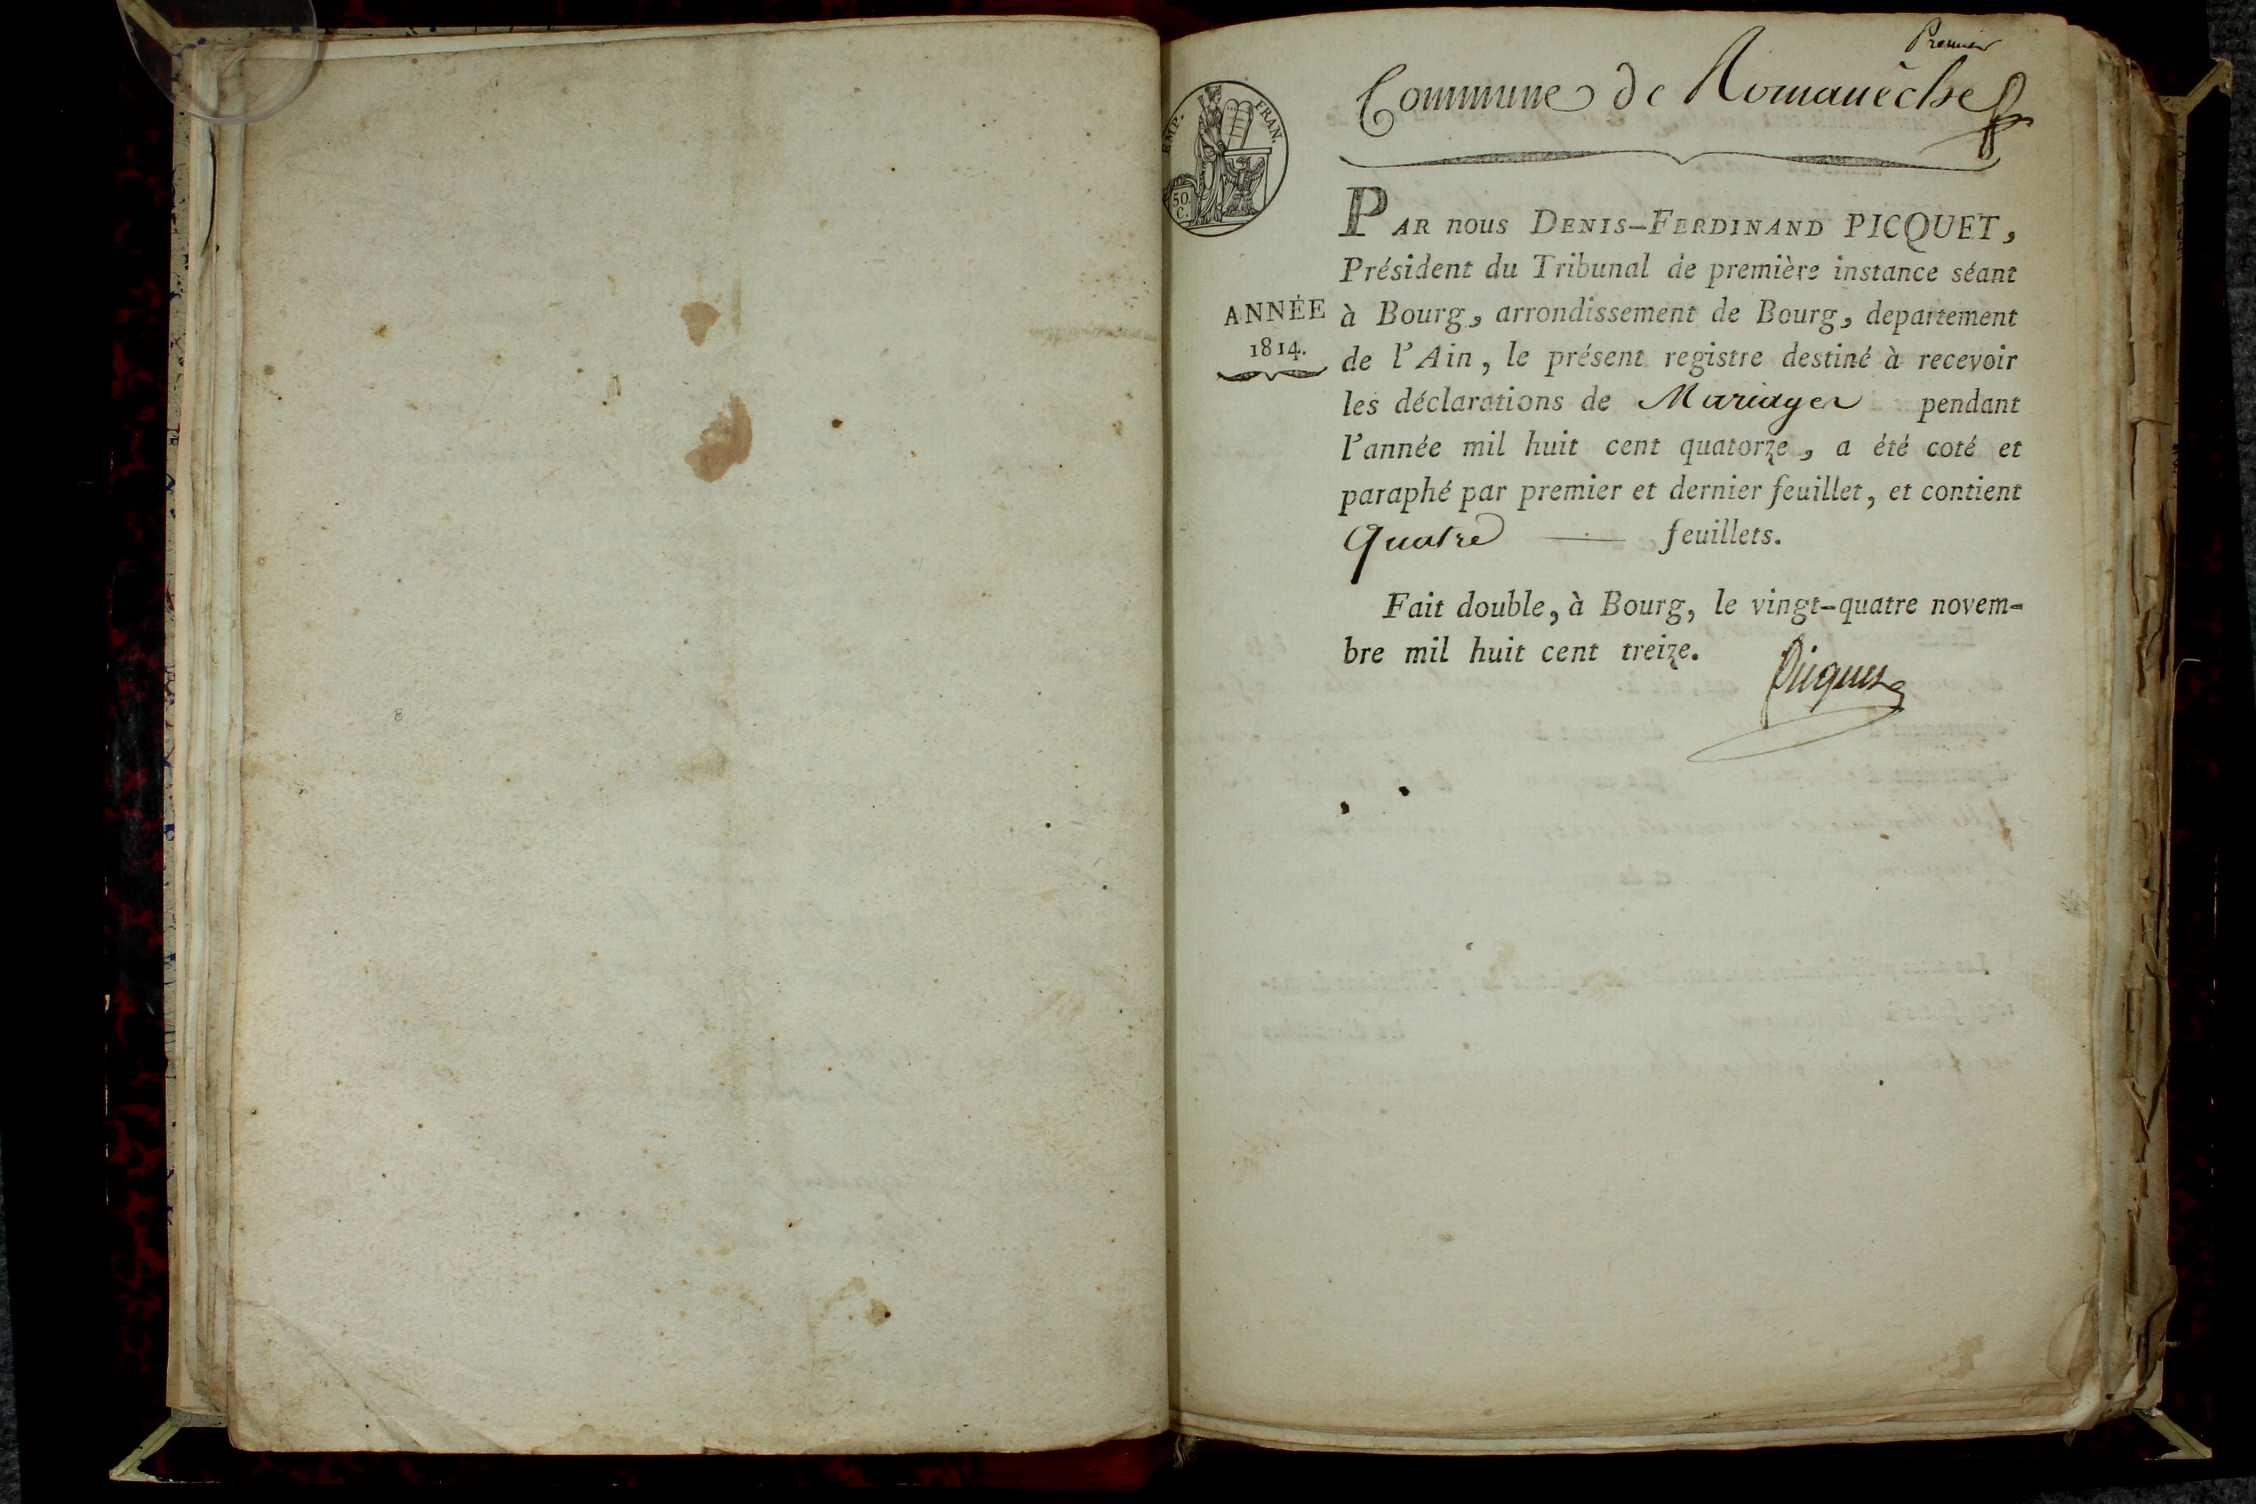 Premier
Commune de Romanèche
EMP. FRAN.
50
C.
ANNÉE
1814.
PAR nous DENIS-FERDINAND PICQUET,
Président du Tribunal de première instance séant
à Bourg, arrondissement de Bourg, departement
de l'Ain, le présent registre destiné à recevoir
les déclarations de Mariages pendant
l'année mil huit cent quatorze, a été coté et
paraphé par premier et dernier feuillet, et contient
Quatre — feuillets.
Fait double, à Bourg, le vingt-quatre novem-
bre mil huit cent treize.
Picquet